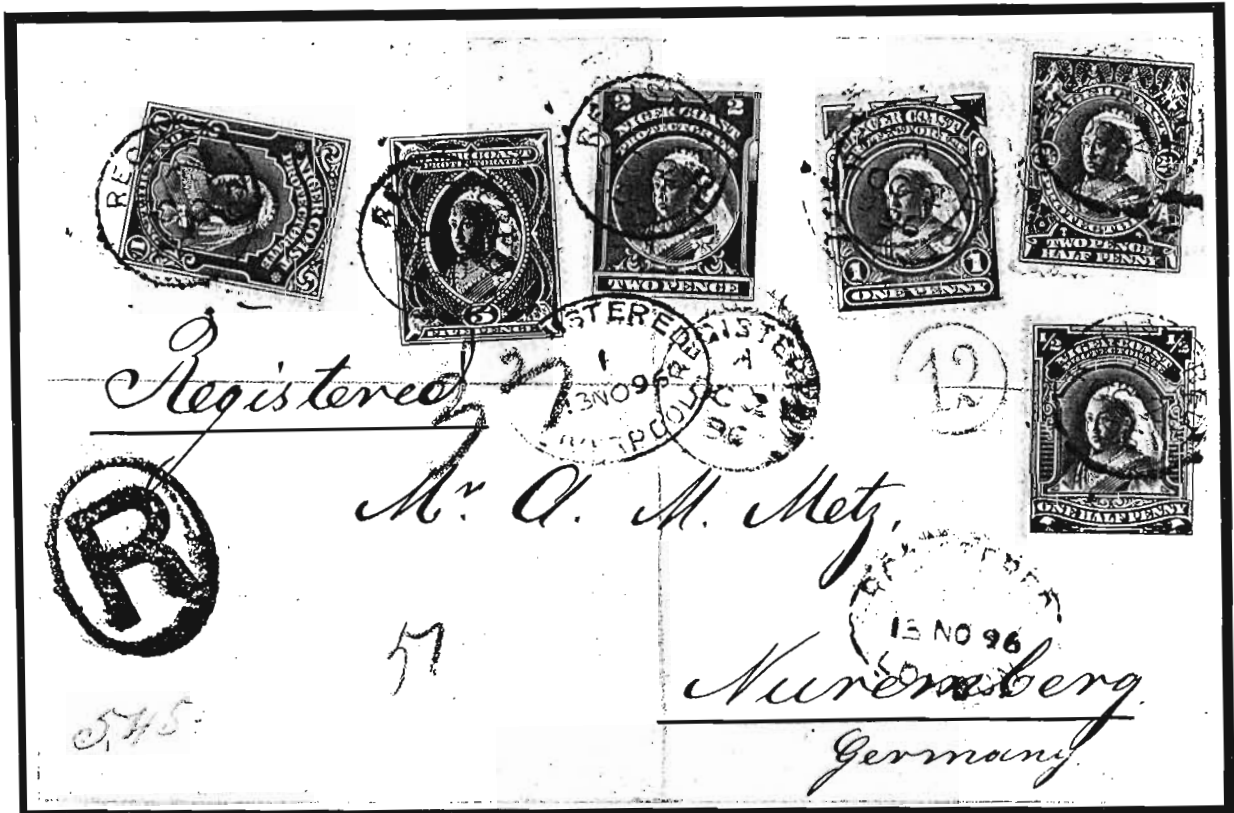 NIGER COAST
PROTECTORATE
1
NIGER COAST
PROTECTORATE
5
HALF PENCE
2 2
NIGER COAST
PROTECTORATE
TWO PENCE
NIGER COAST
1 1
ONE PENNY
NIGER COAST
2½
TWO PENCE
HALF PENNY
½ ½
NIGER COAST
ONE HALF PENNY
Registered
REGISTERED
1
13 NO 96
LIVERPOOL
REGISTERED
A
96
12
R
Mr. A. M. Metz,
REGISTERED
13 NO 96
LONDON
57
Nuremberg
Germany
545